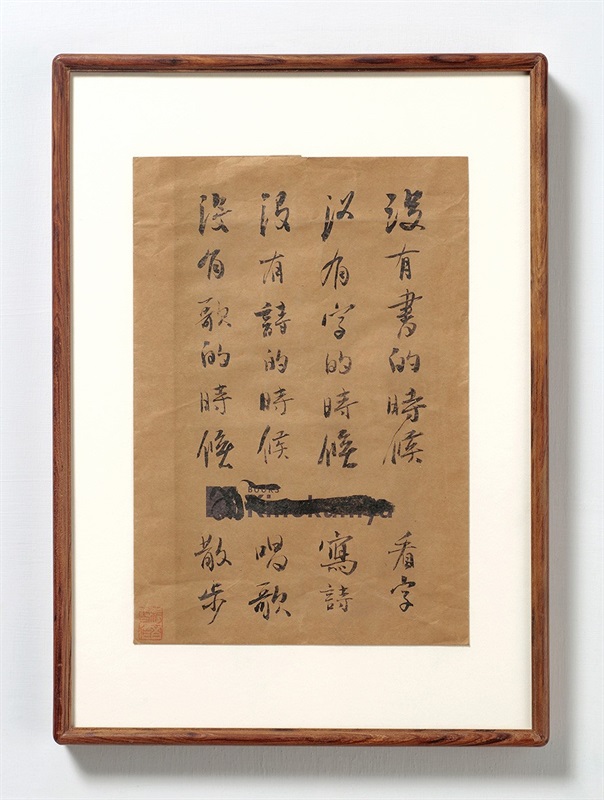 没有書的時候
看字
没有字的時候
寫詩
没有詩的時候
唱歌
没有歌的時候
散步
BOOKS
Kinokuniya